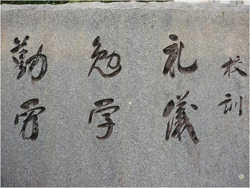 校訓
礼儀
勉学
勤労